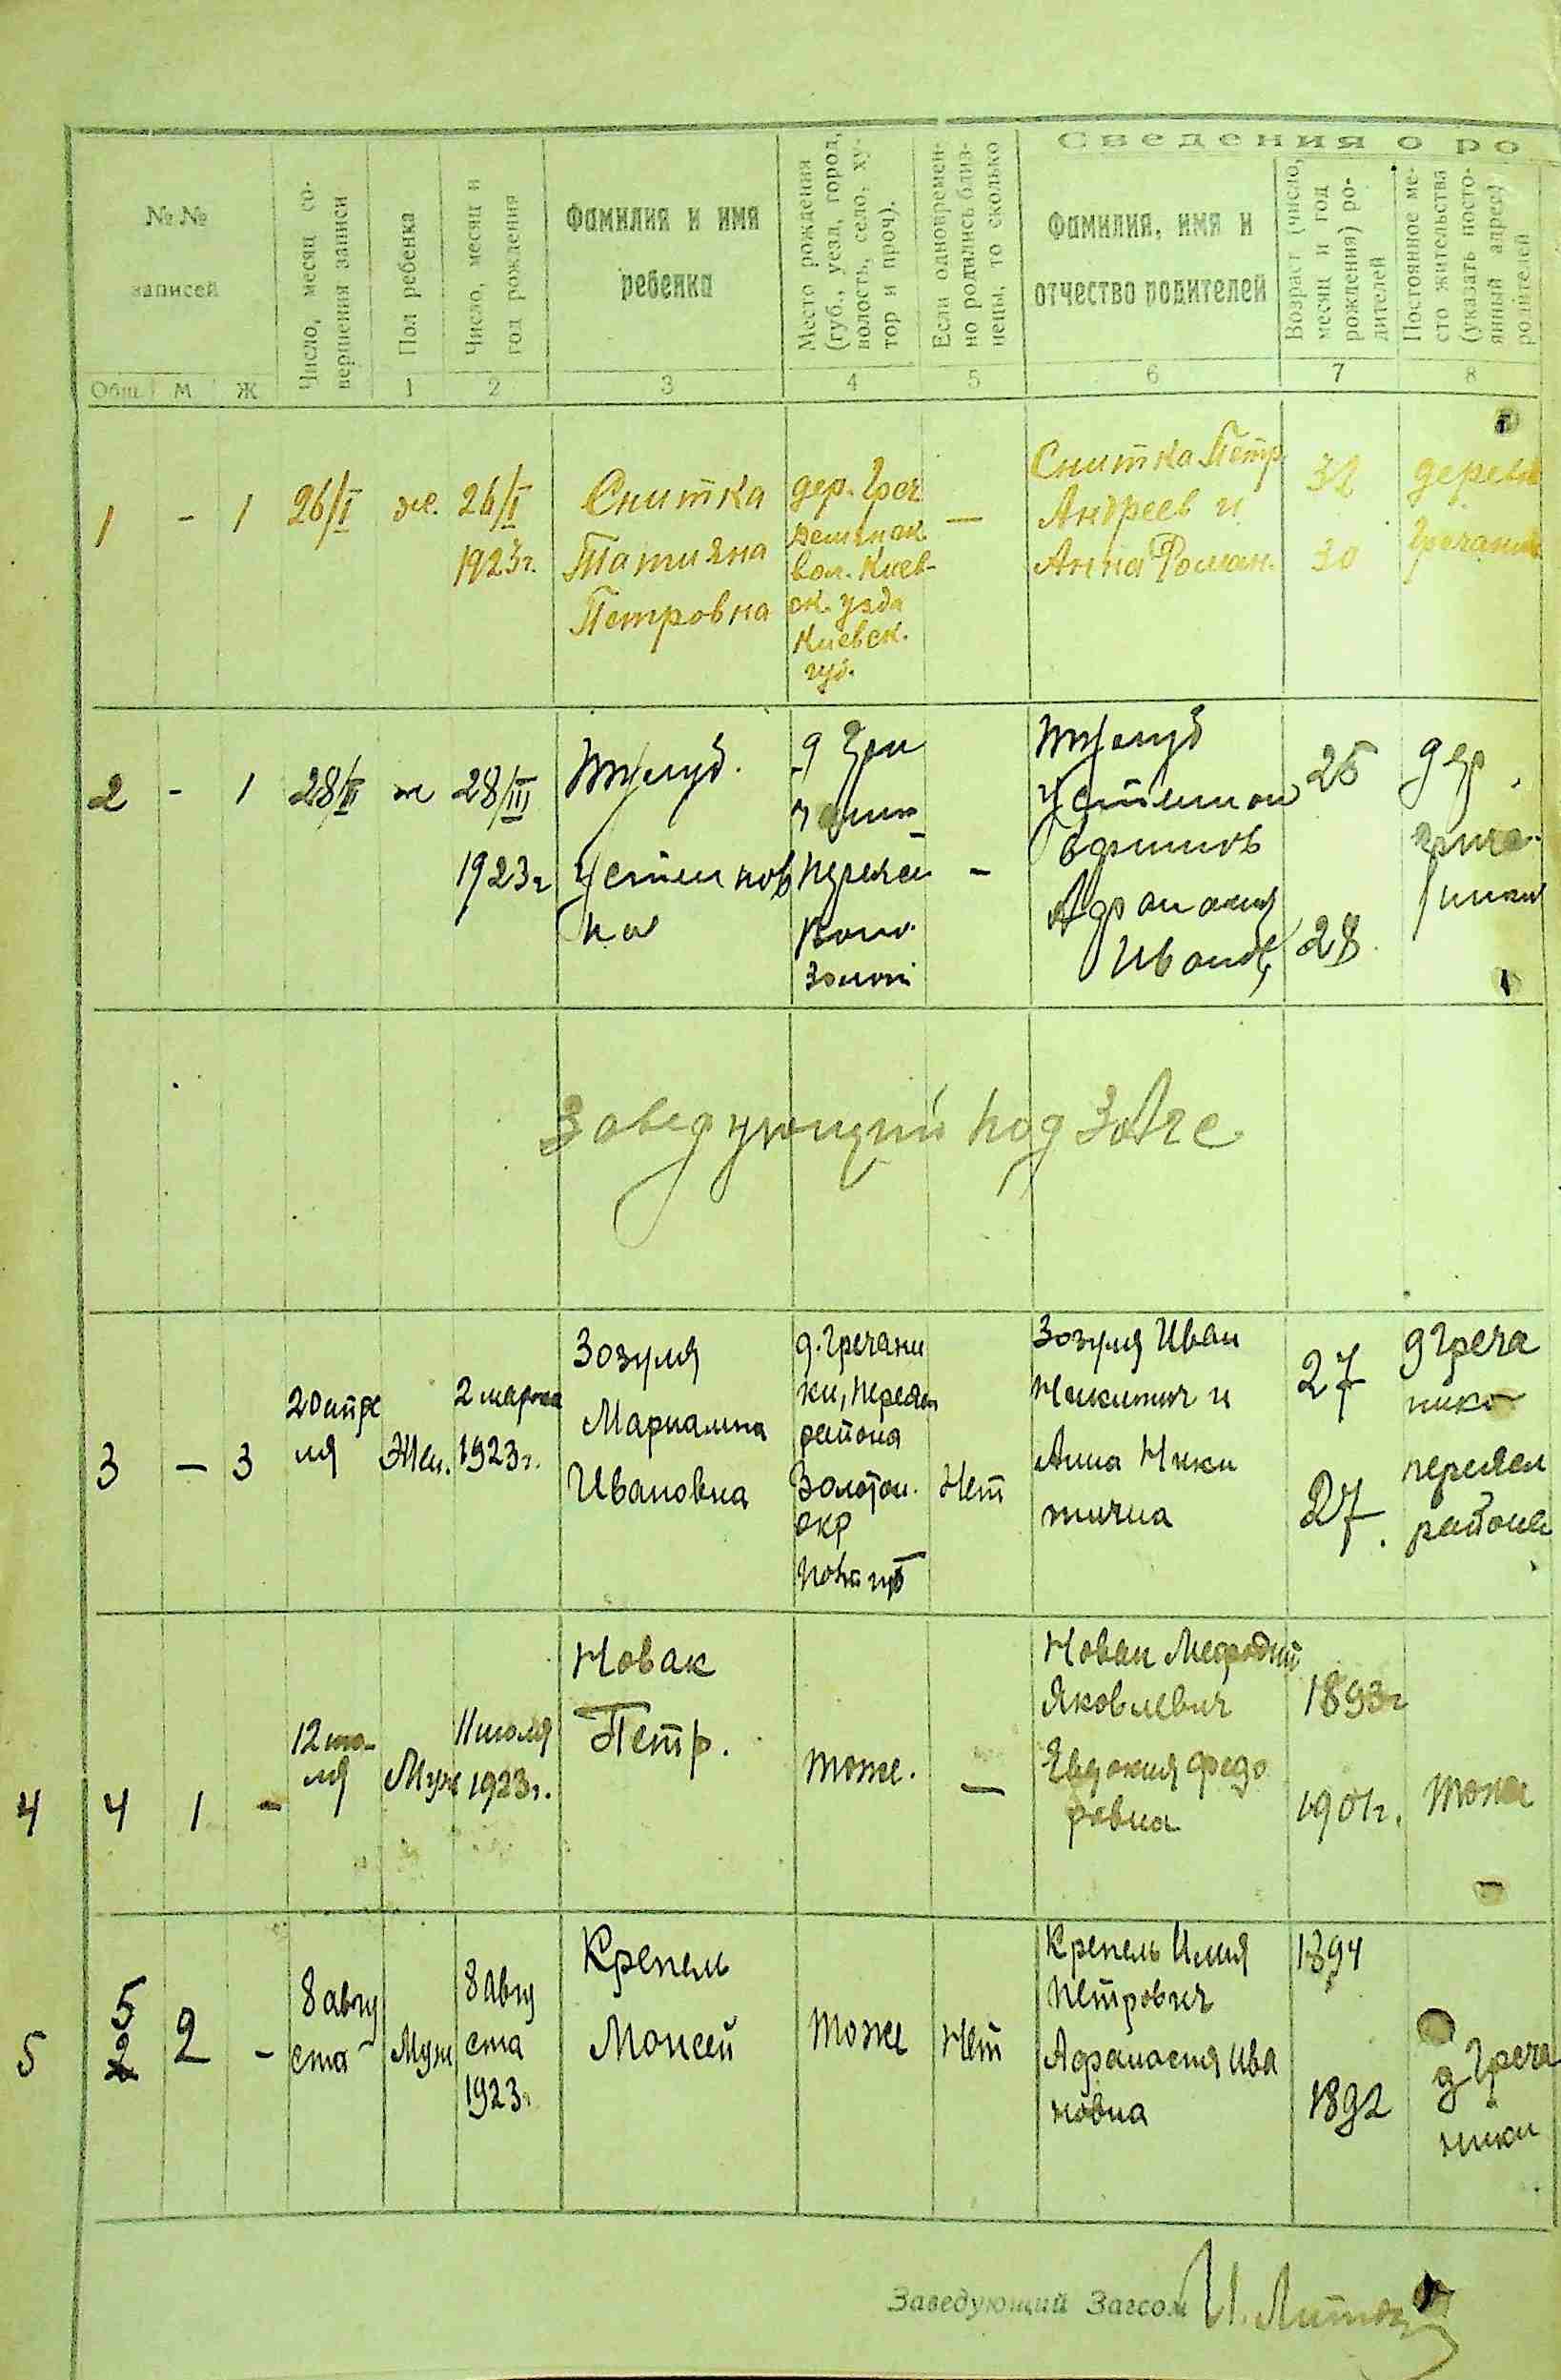 Сведения о ро
№ №
записей
Общ. М Ж
Число, месяц со-
вершения записи
Пол ребенка
1
Число, месяц и
год рождения
2
Фамилия и имя
ребенка
3
Место рождения
(губ., уезд, город,
волость, село, ху-
тор и проч).
4
Если одновремен-
но родились близ-
нецы, то сколько
5
Фамилия, имя и
отчество родителей
6
Возраст (число,
месяц и год
рождения) ро-
дителей
7
Постоянное ме-
сто жительства
(указать посто-
янный адрес)
родителей
8
1 - 1 26/I ж. 26/I
1923г.
Снитка
Татияна
Петровна
дер. Греч
вол. Киев-
ск. уезда
Киевск.
губ.
—
Снитка Петр
Андреев и
Анна Роман.
32
30
дерев
Гречаник
2 - 1 28/III ж 28/III
1923г
Устинов
на
-
25
28
дер.
Заведующий подЗАГС
3 — 3
20 апре
ля
Жен.
2 марта
1923г.
Зозуля
Марианна
Ивановна
д. Гречани
ки, Переясл
района
Золотон.
окр
Полт губ
Нет
Зозуля Иван
Никитич и
Анна Ники
тична
27
27.
д Греча
ники
переясл
района
4 4 1 -
12 ию-
ля
Муж
11 июля
1923г.
Новак
Петр.
тоже.
—
Новак Мефодий
Яковлевич
Евдокия Федо
ровна
1893г
1901г.
тоже
5 5
2 2 -
8 авгу
ста
Муж
8 Авгу
ста
1923г
Крепель
Моисей
тоже
Нет
Крепель Илия
Петрович
Афанасия Ива
новна
1894
1892
д Греча
ники
Заведующий Загсом